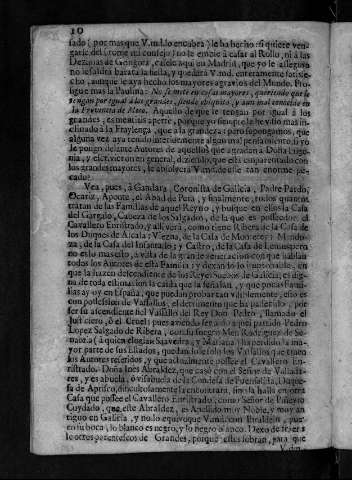 10
sado (por mas que V.md. lo encubra) le ha hecho: si quiere ven-
garse della, tome mi consejo; no le envie à casar al Rollo, ni à las
Dezimas de Gongora, caselo aqui en Madrid, que yo le asseguro
no le saldra barata la fiesta, y quedarà V.md. enteramente satisfe-
cho, aunque le aya hecho los mayores agravios del Mundo. Pro-
sigue mas la Paulina: No se mete en cosas mayores, queriendo que le
tengan por igual à los grandes, siendo chiquito, y aun mal conocido en
la Provincia de Moto. Aquello de que le tengan por igual à los
grandes, es mentís aparte, porque yo siempre le he visto mas in-
clinado à la Fraylenga, que à la grandeza: pero supongamos, que
alguna vez aya tenido interiormente algun mal pensamiento, si yo
le pongo delante Autores de aquellos que arrastran à Doña Urge-
nia, y escrivieron en general, diziendo, que està emparentado con
los grandes mayores, le absolverà V.md. deste tan enorme pe-
cado?
Vea, pues, à Gandara, Coronista de Galicia, Padre Pardo,
Ocariz, Aponte, el Abad de Para, y finalmente, todos quantos
tratan de las Familias de aquel Reyno, y busque en ellos la Casa
del Gargalo, Cabeza de los Salgados, de la que es possedor el
Cavallero Enristrado, y allí verà, como tiene Ribera de la Casa de
los Duques de Alcalà: Viezna, de la Casa de Monterey: Mendo-
za, de la Casa del Infantado; y Castro, de la Casa de Lemus; pero
no esto mas esto, à vista de la grande veneracion con que hablan
todos los Autores de esta Familia; y dexando lo innegable, en
que la hazen descendiente de los Reyes Suevos de Galicia, es dig-
na de toda estimacion la caída que la señalan, y que pocas Fami-
lias ay oy en España, que puedan probar tan visiblemente, esto es
con possession de Vassallos, el detrimento que ha padecido, por
ser su ascendiente fiel Vassallo del Rey Don Pedro, llamado el
Justiciero, ò el Cruel; pues aviendo seguido aquel partido Pedro
Lopez Salgado de Ribera, con su suegro Men Rodriguez de Se-
nabria (à quien elogian Saavedra, y Mariana) ha perdido la ma-
yor parte de sus Estados, quedando solo los Vassallos que traen
los Autores referidos, y que actualmente possee el Cavallero En-
ristrado. Doña Inès Abraldez, que casò con el Señor de Vallada-
res, y es abuela, ò visabuela de la Condesa de Fuensalida, Duque-
sa de Aprisco, dificultosamente la encontrarà, sino la halla en otra
Casa que possee el Cavallero Enristrado, como Señor de Piñeyro
Cuydado, que este Abraldez, es Apellido muy Noble, y muy an-
tiguo en Galicia, y no lo equivoque V.md. con Ibraldein, pues
en su boca, lo blanco es negro, y lo negro blanco. Dexo de traer-
le otros parentescos de Grandes, porque estos sobran, para que
V.md.